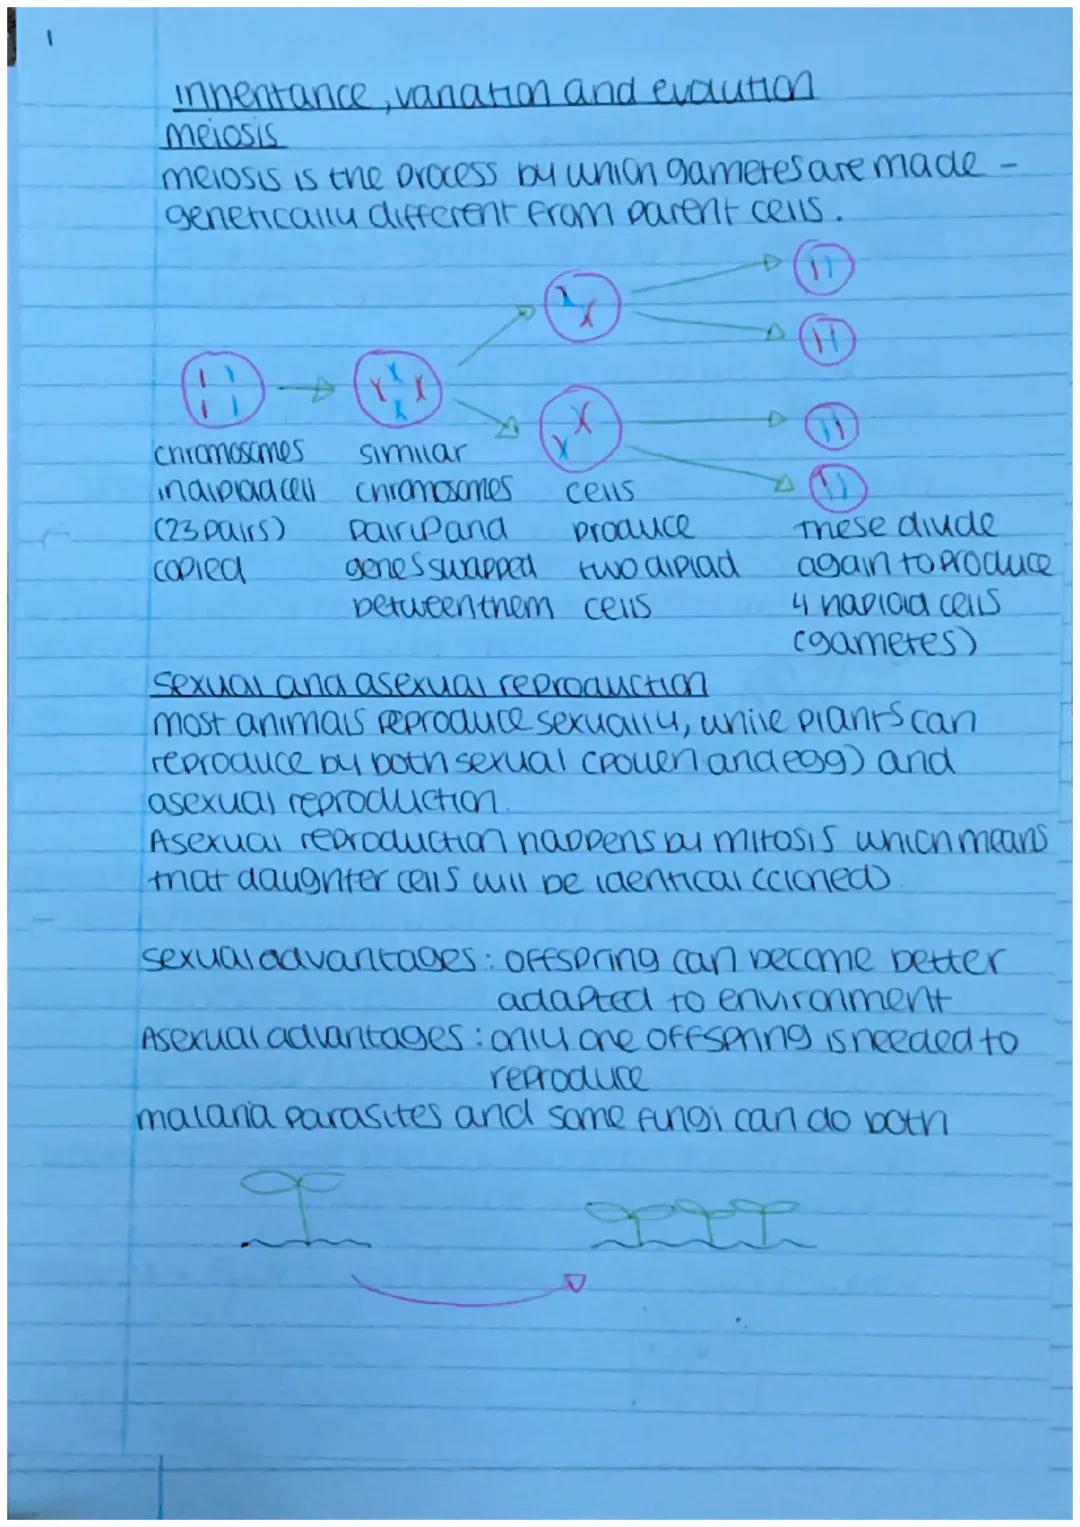 1
Inheritance, variation and evolution
meiosis
meiosis is the process by which gametes are made -
genetically different from parent cells.
chromosomes
in diploid cell
(23 pairs)
copied
similar
chromosomes
pair up and
genes swapped
between them
cells
produce
two diploid
cells
These divide
again to produce
4 haploid cells
(gametes)
Sexual and asexual reproduction
most animals reproduce sexually, while plants can
reproduce by both sexual (pollen and egg) and
asexual reproduction.
Asexual reproduction happens by mitosis which means
that daughter cells will be identical (cloned)
sexual advantages: offspring can become better
adapted to environment
Asexual advantages: only one offspring is needed to
reproduce
malaria parasites and some fungi can do both